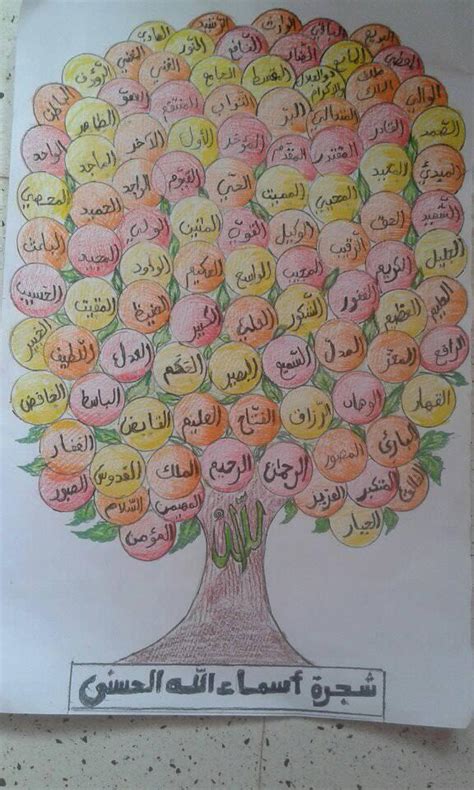 الوارث
الرشيد
البديع
الباقي
الضار
النافع
النور
الهادي
الجامع
مالك الملك
ذو الجلال والإكرام
المقسط
الجامع
المغني
الغني
الرؤوف
الوالي
المتعالي
البر
التواب
المنتقم
العفو
الباطن
الصمد
القادر
الظاهر
المقتدر
المقدم
المؤخر
الأول
الآخر
الماجد
الواحد
المبدئ
المعيد
المحيي
المميت
الحي
القيوم
الواجد
الحميد
المحصي
الشهيد
الحق
الرقيب
الوكيل
القوي
المتين
الولي
المجيد
الباعث
الجليل
الكريم
المجيب
الواسع
الحكيم
الودود
المقيت
الحسيب
الحليم
العظيم
الغفور
الشكور
العلي
الكبير
الحفيظ
اللطيف
الخبير
الرافع
المعز
المذل
السميع
البصير
الحكم
العدل
القهار
الوهاب
الرزاق
الفتاح
العليم
القابض
الباسط
الخافض
البارئ
المصور
الغفار
الخالق
المتكبر
العزيز
الرحمان
الرحيم
الملك
القدوس
الصور
المهيمن
السلام
الجبار
المؤمن
الله
شجرة أسماء الله الحسنى